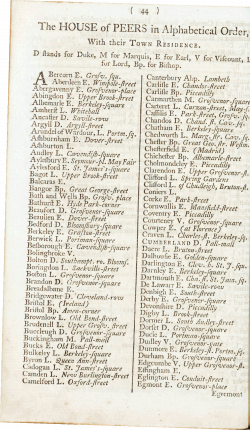 ( 44 )
The HOUSE of PEERS in Alphabetical Order,
With their TOWN RESIDENCE.
D stands for Duke, M for Marquis, E for Earl, V for Viscount, L
for Lord, Bp. for Bishop.
Abercorn E. Grosv. squ.
Aberdeen E. Wimpole-street
Abergavenny E. Grosvenor-place
Abingdon E. Upper Brook-street
Albemarle E. Berkeley-square
Amherst L. Whitehall
Ancaster D. Savile-row
Argyll D. Argyll-street
Arundel of Wardour, L. Portm. sq.
Ashburnham E. Dover-street
Ashburton L.
Audley L. Cavendish-square
Aylesbury E. Seymour-st. May Fair
Aylesford E. St. James's-square
Bagot L. Upper Brook-street
Balcaras E.
Bangor Bp. Great George-street
Bath and Wells Bp. Grosv. place
Bathurst E. Hyde Park-corner
Beaufort D. Grosvenor-square
Beaulieu E. Dover-street
Bedford D. Bloomsbury-square
Berkeley E. Grafton-street
Berwick L. Portman-square
Besborough E. Cavendish-square
Bolingbroke V.
Bolton D. Southampt. ro. Bloomsb.
Boringdon L. Sackville-street
Boston L. Grosvenor-square
Brandon D. Grosvenor-square
Breadalbane E.
Bridgewater D. Cleveland-row
Bristol E. (Ireland)
Bristol Bp. Amen-corner
Brownlow L. Old Bond-street
Brudenell L. Upper Grosv. street
Buccleugh D. Grosvenor-square
Buckingham M. Pall-mall
Bucks E. Old Bond-street
Bulkeley L. Berkeley-square
Byron L. Queen Ann-street
Cadogan L. St. James's-square
Camden L. New Burlington-street
Camelford L. Oxford-street
Canterbury Abp. Lambeth
Carlisle E. Chandos-street
Carlisle Bp. Piccadilly
Carmarthen M. Grosvenor-square
Carteret L. Curzon-street, May F.
Cassilis E. Park-street, Grosv. sq.
Chandos D. Chand. st. Cav. squ.
Chatham E. Berkeley-square
Chedworth L. Marg. st. Cav. sq.
Chester Bp. Great Geo. st. Westm.
Chesterfield E. (Madrid)
Chichester Bp. Albemarle-street
Cholmondeley E. Piccadilly
Clarendon E. Upper Grosvenor-st.
Clifford L. Spring Gardens
Clifford L. of Chudleigh, Bruton-st.
Coniers L.
Corke E. Park-street
Cornwallis E. Mansfield-street
Coventry E. Piccadilly
Courtenay V. Grosvenor-square
Cowper E. (at Florence)
Craven L. Charles-st. Berkeley-sq.
CUMBERLAND D. Pall-mall
Dacre L. Bruton-street
Dalhousie E. Golden-square
Darlington E. Clev. R. St. J. squ.
Darnley E. Berkeley-square
Dartmouth E. Cha. R. St. Jam. sq.
De Lawarr E. Sawile-row
Denbigh E. South-street
Derby E. Grosvenor-square
Devonshire D. Piccadilly
Digby L. Brook-street
Dormer L. South Audley-street
Dorset D. Grosvenor-square
Ducie L. Portman-square
Dudley V. Grosvenor-gate
Dunmore E. Berkeley-st. Portm. sq.
Durham Bp. Grosvenor-square
Edgecumbe V. Upper Grosvenor-st.
Effingham E.
Eglington E. Conduit-street
Egmont E. Grosvenor-place
Egremont